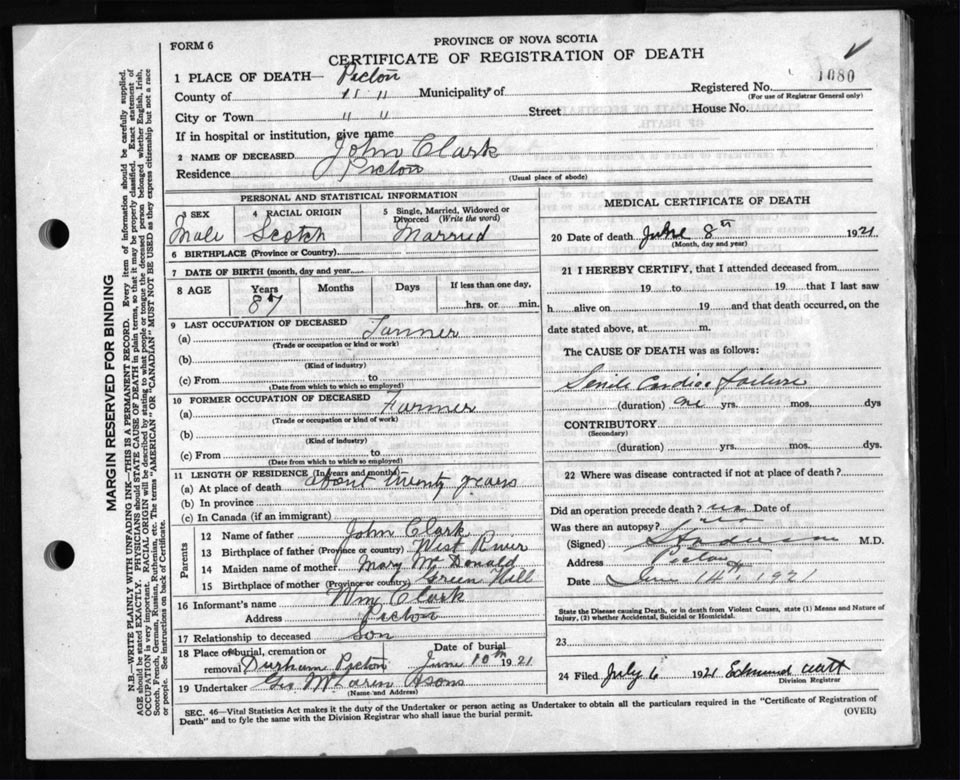 FORM 6
PROVINCE OF NOVA SCOTIA
CERTIFICATE OF REGISTRATION OF DEATH
1080
1 PLACE OF DEATH— Pictou
County of " " Municipality of Registered No.
(For use of Registrar General only)
City or Town " " Street House No.
If in hospital or institution, give name
2 NAME OF DECEASED John Clark
Residence Pictou
(Usual place of abode)
PERSONAL AND STATISTICAL INFORMATION
3 SEX 4 RACIAL ORIGIN 5 Single, Married, Widowed or Divorced (Write the word)
Male Scotch Married
6 BIRTHPLACE (Province or Country)
7 DATE OF BIRTH (month, day and year
8 AGE Years Months Days If less than one day,
87 hrs. or min.
9 LAST OCCUPATION OF DECEASED
(a) Farmer
(Trade or occupation or kind or work)
(b)
(Kind of industry)
(c) From to
(Date from which to which so employed)
10 FORMER OCCUPATION OF DECEASED
(a) Farmer
(Trade or occupation or kind of work)
(b)
(Kind of industry)
(c) From to
(Date from which to which so employed)
11 LENGTH OF RESIDENCE (In years and months)
(a) At place of death about twenty years
(b) In province
(c) In Canada (if an immigrant)
Parents
12 Name of father John Clark
13 Birthplace of father (Province or country) West River
14 Maiden name of mother Mary McDonald
15 Birthplace of mother (Province or country) Green Hill
16 Informant's name Wm Clark
Address Pictou
17 Relationship to deceased Son
18 Place of burial, cremation or removal Durham Pictou Date of burial June 10th 1921
19 Undertaker Geo McLaren & Sons
(Name and Address)
MEDICAL CERTIFICATE OF DEATH
20 Date of death June 8th 1921
(Month, day and year)
21 I HEREBY CERTIFY, that I attended deceased from
19 to 19 that I last saw
h alive on 19 and that death occurred, on the
date stated above, at m.
The CAUSE OF DEATH was as follows:
Senile Cardiac Failure
(duration) one yrs. mos. dys
CONTRIBUTORY
(Secondary)
(duration) yrs. mos. dys.
22 Where was disease contracted if not at place of death?
Did an operation precede death? no Date of
Was there an autopsy? no
(Signed) M.D.
Address Pictou
Date June 14th 1921
State the Disease causing Death, or in death from Violent Causes, state (1) Means and Nature of
Injury, (2) whether Accidental, Suicidal or Homicidal.
23
24 Filed July 6 1921 Edmund
Division Registrar
SEC. 46—Vital Statistics Act makes it the duty of the Undertaker or person acting as Undertaker to obtain all the particulars required in the "Certificate of Registration of
Death" and to fyle the same with the Division Registrar who shall issue the burial permit.
(OVER)
MARGIN RESERVED FOR BINDING
N.B.—WRITE PLAINLY WITH UNFADING INK—THIS IS A PERMANENT RECORD. Every item of information should be carefully supplied.
AGE should be stated EXACTLY. PHYSICIANS should STATE CAUSE OF DEATH in plain terms, so that it may be properly classified. Exact statement of
OCCUPATION is very important. RACIAL ORIGIN will be described by stating to what people or tongue the deceased person belonged whether English, Irish,
Scotch, French, German, Russian, Ruthenian, etc. The terms "AMERICAN" OR "CANADIAN" MUST NOT BE USED as they express citizenship but not a race
or people. See instructions on back of Certificate.